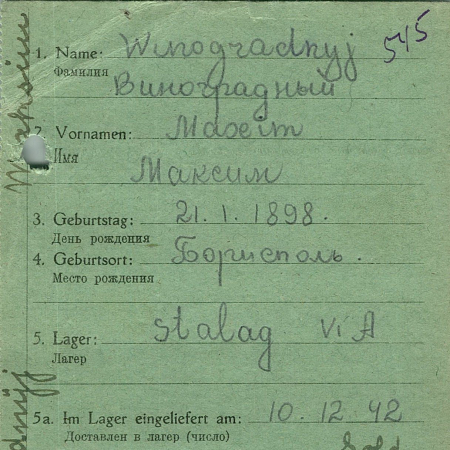 545
1. Name: Winogradnyj
Фамилия
Виноградный
2. Vornamen: Maxim
Имя
Максим
3. Geburtstag: 21. 1. 1898.
День рождения
4. Geburtsort: Борисполь.
Место рождения
5. Lager: Stalag VI A
Лагер
5a. Im Lager eingeliefert am: 10. 12. 42
Доставлен в лагер (число)